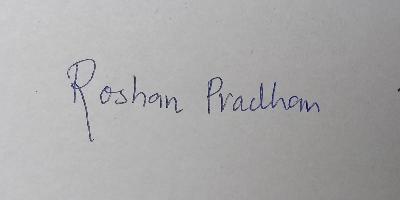 Roshan Pradhan